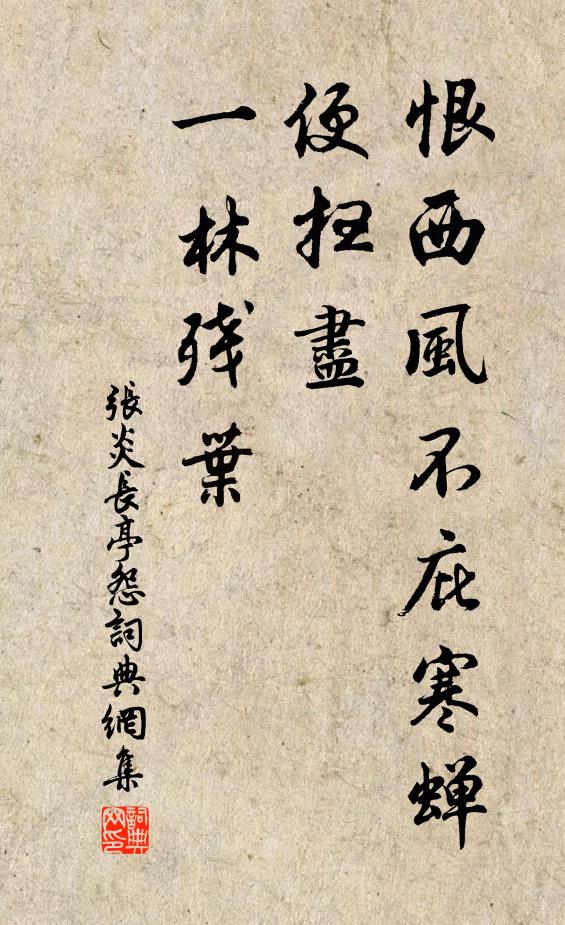 恨西風不庇寒蟬
便扫盡
一林殘葉
張炎長亭怨詞典網集
詞典网印